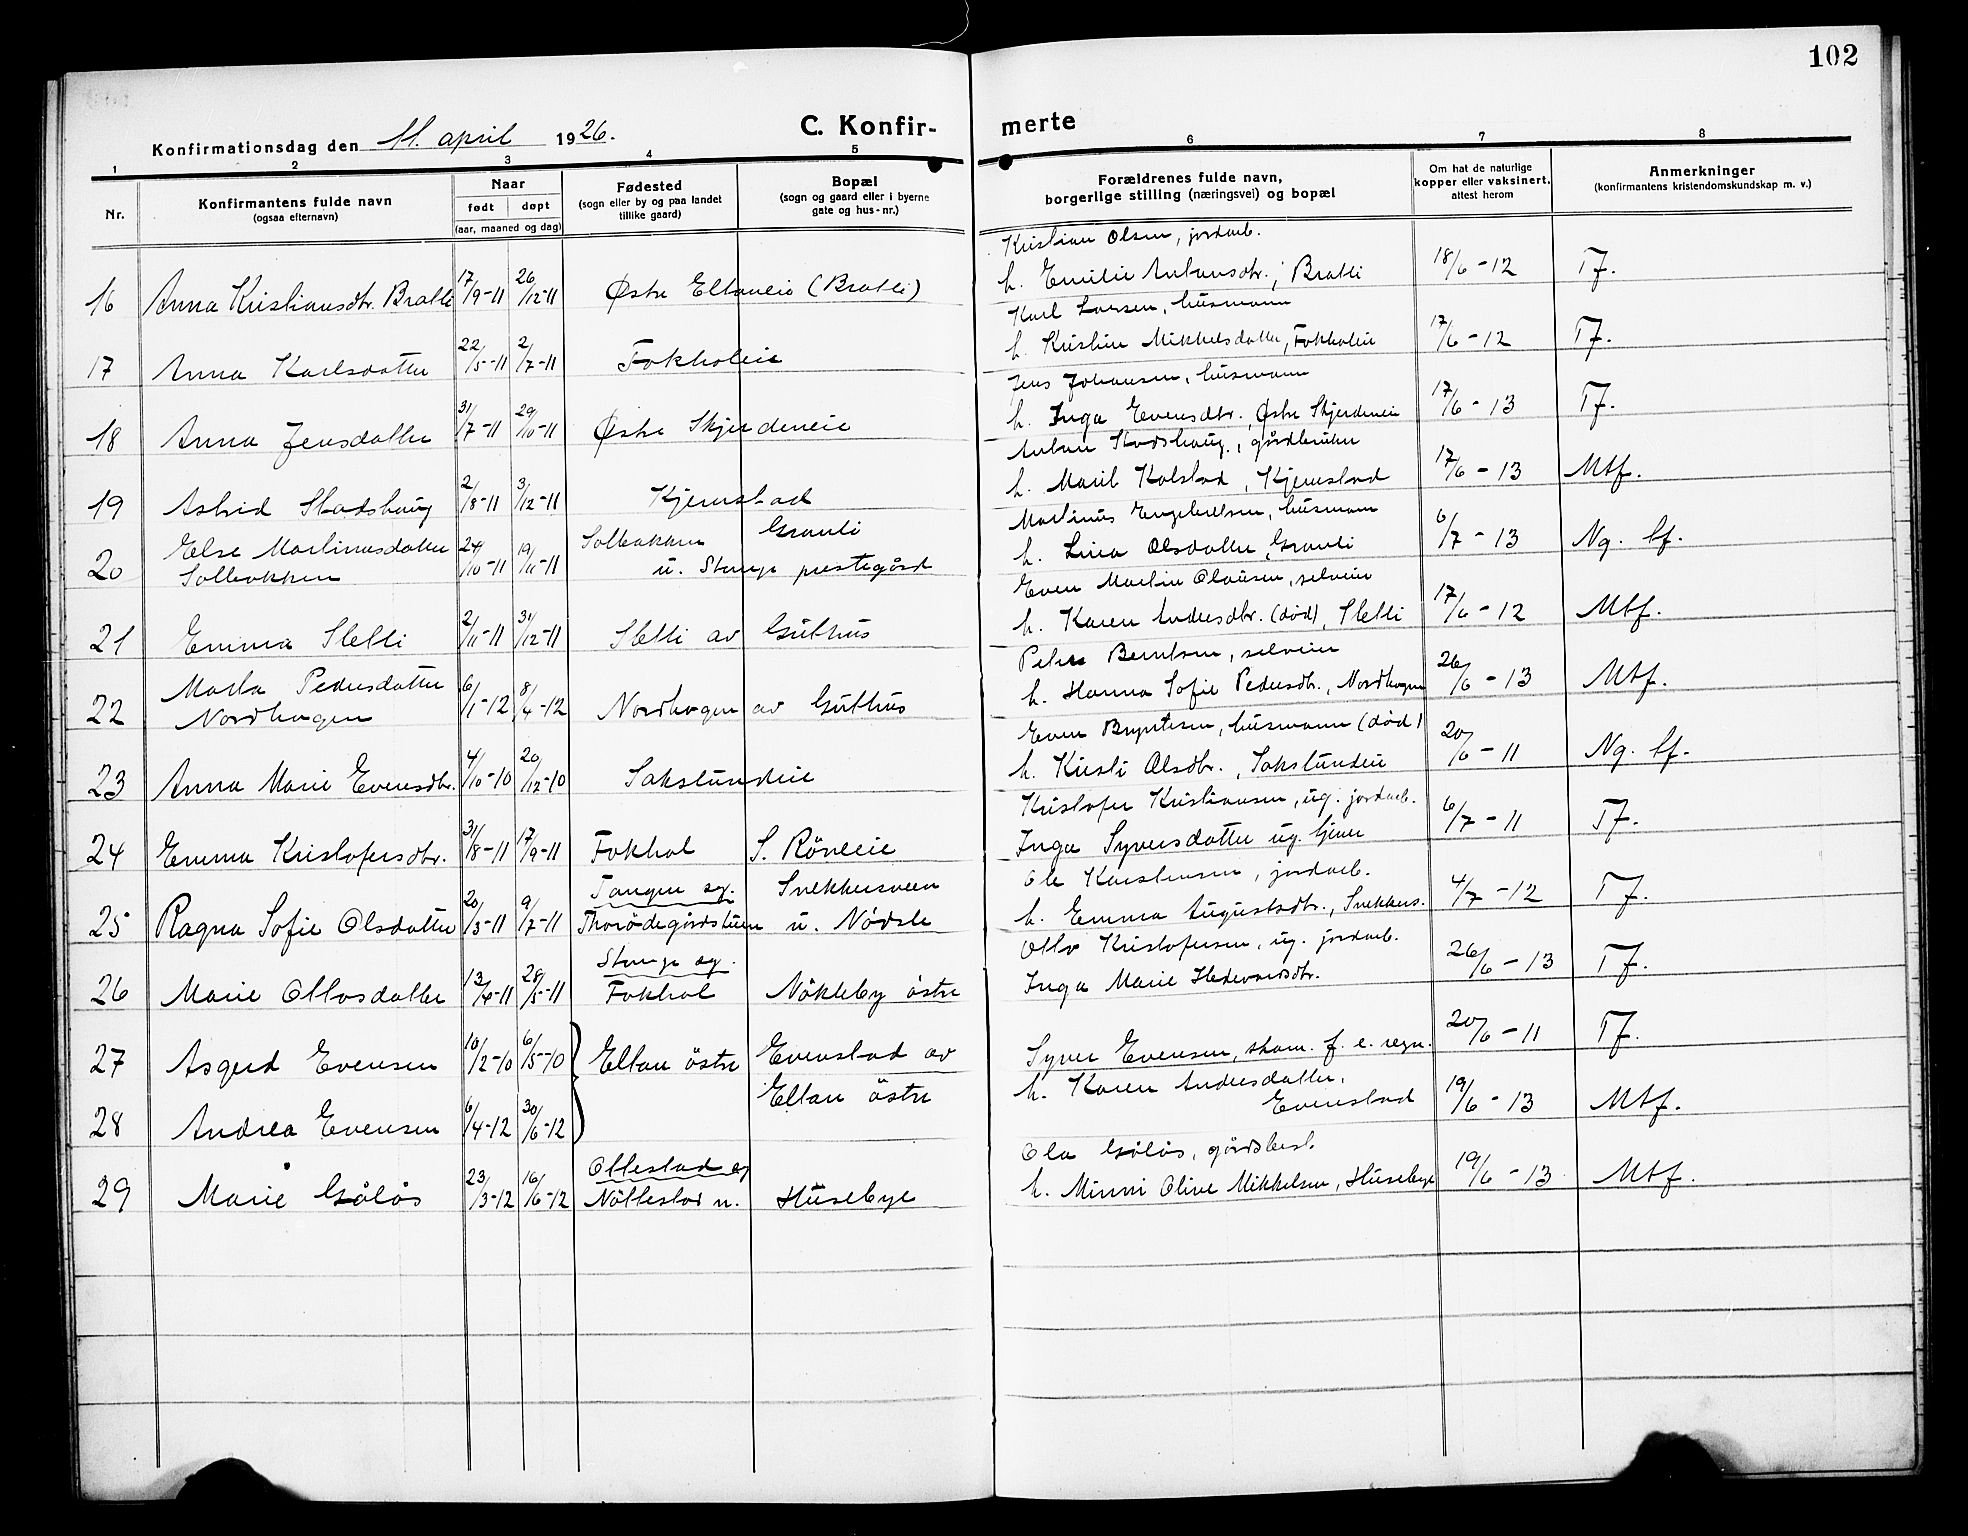 102
Konfirmationsdag den 11. april 1926.
C. Konfir-
merte
1 2 3 4 5 6 7 8
Nr.
Konfirmantens fulde navn
(ogsaa efternavn)
Naar
født døpt
(aar, maaned og dag)
Fødested
(sogn eller by og paa landet
tillike gaard)
Bopæl
(sogn og gaard eller i byerne
gate og hus-nr.)
Forældrenes fulde navn,
borgerlige stilling (næringsvei) og bopæl
Om hat de naturlige
kopper eller vaksinert,
attest herom
Anmerkninger
(konfirmantens kristendomskundskap m. v.)
Kristian Olsen, jordarb.
16 Anna Kristiansdtr. Bratli 17/9-11 26/12-11 Østre Ellaneie (Bratli) h. Emilie Antonsdtr., Bratli 18/6-12 Tf.
Karl Larsen, husmann
17 Anna Karlsdatter 22/5-11 2/7-11 Fokholeie h. Kristine Mikkelsdatter, Fokholeie 17/6-12 Tf.
Jens Johansen, husmann
18 Anna Jensdatter 31/7-11 29/10-11 Østre Skjerdeneie h. Inga Evensdtr., Østre Skjerdeneie 17/6-13 Tf.
Anton Stadshaug, gårdbruker
19 Astrid Stadshaug 2/8-11 3/12-11 Kjemstad h. Marit Kolstad, Kjemstad 17/6-13 Mtf.
Martinus Engebretsen, husmann
20 Else Martinusdatter Solbakken 24/10-11 19/11-11 Solbakken Granli
u. Stange prestegård h. Lina Olsdatter, Granli 6/7-13 Ng. tf.
Even Martin Olausen, selveier
21 Emma Sletli 2/11-11 31/12-11 Sletli av Guthus h. Karen Andersdtr. (død), Sletli 17/6-12 Mtf.
Peter Berntsen, selveier
22 Marta Pedersdatter Nordhagen 6/1-12 8/4-12 Nordhagen av Guthus h. Hanna Sofie Pedersdtr., Nordhagen 26/6-13 Mtf.
Even Bryntesen, husmann (død)
23 Anna Marie Evensdtr. 4/10-10 20/12-10 Sakstundeie h. Kirsti Olsdtr., Sakstundeie 20/6-11 Ng. tf.
Kristofer Kristiansen, ug. jordarb.
24 Emma Kristofersdtr. 31/8-11 17/9-11 Fokhol S. Röneeie Inga Syversdatter ug. tjener 6/7-11 Tf.
Tangen sg. Snekkersveen Ole Karstensen, jordarb.
25 Ragna Sofie Olsdatter 20/3-11 9/7-11 Thorödegårdstuen u. Nödsle h. Emma Augustsdtr., Snekkers. 4/7-12 Tf.
Stange sg. Otto Kristofersen, ug. jordarb.
26 Marie Ottosdatter 13/4-11 28/5-11 Fokhol Nökleby östre Inga Marie Hedevardsdtr. 26/6-13 Tf.
27 Asgerd Evensen 10/2-10 6/5-10 Ellan östre Evenstad av Syver Evensen, skom. f. e. regn. 20/6-11 Tf.
Ellan östre h. Karen Andersdatter,
28 Andrea Evensen 6/4-12 30/6-12 Evenstad 19/6-13 Mtf.
Ottestad sg Ola Gålås, gårdbest.
29 Marie Gålås 23/3-12 16/6-12 Nöttestad n. Husebye h. Minni Olive Mikkelsen, Husebye 19/6-13 Mtf.